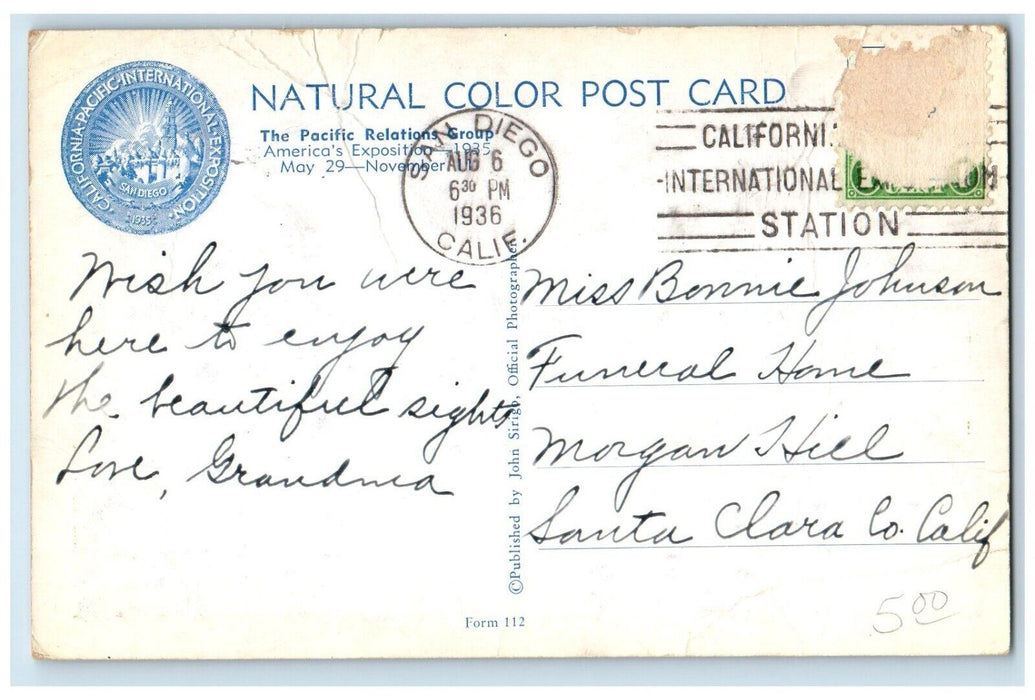 CALIFORNIA·PACIFIC·INTERNATIONAL·EXPOSITION·
SAN DIEGO
·1935·
NATURAL COLOR POST CARD
The Pacific Relations Group
America's Exposition—1935
May 29—November
SAN DIEGO
AUG 6
6 30 PM
1936
CALIF.
CALIFORNI
INTERNATIONAL
STATION
Wish you were
here to enjoy
the beautiful sights
Love, Grandma
©Published by John Sirigo, Official Photographer
Miss Bonnie Johnson
Funeral Home
Morgan Hill
Santa Clara Co. Calif
5 00
Form 112